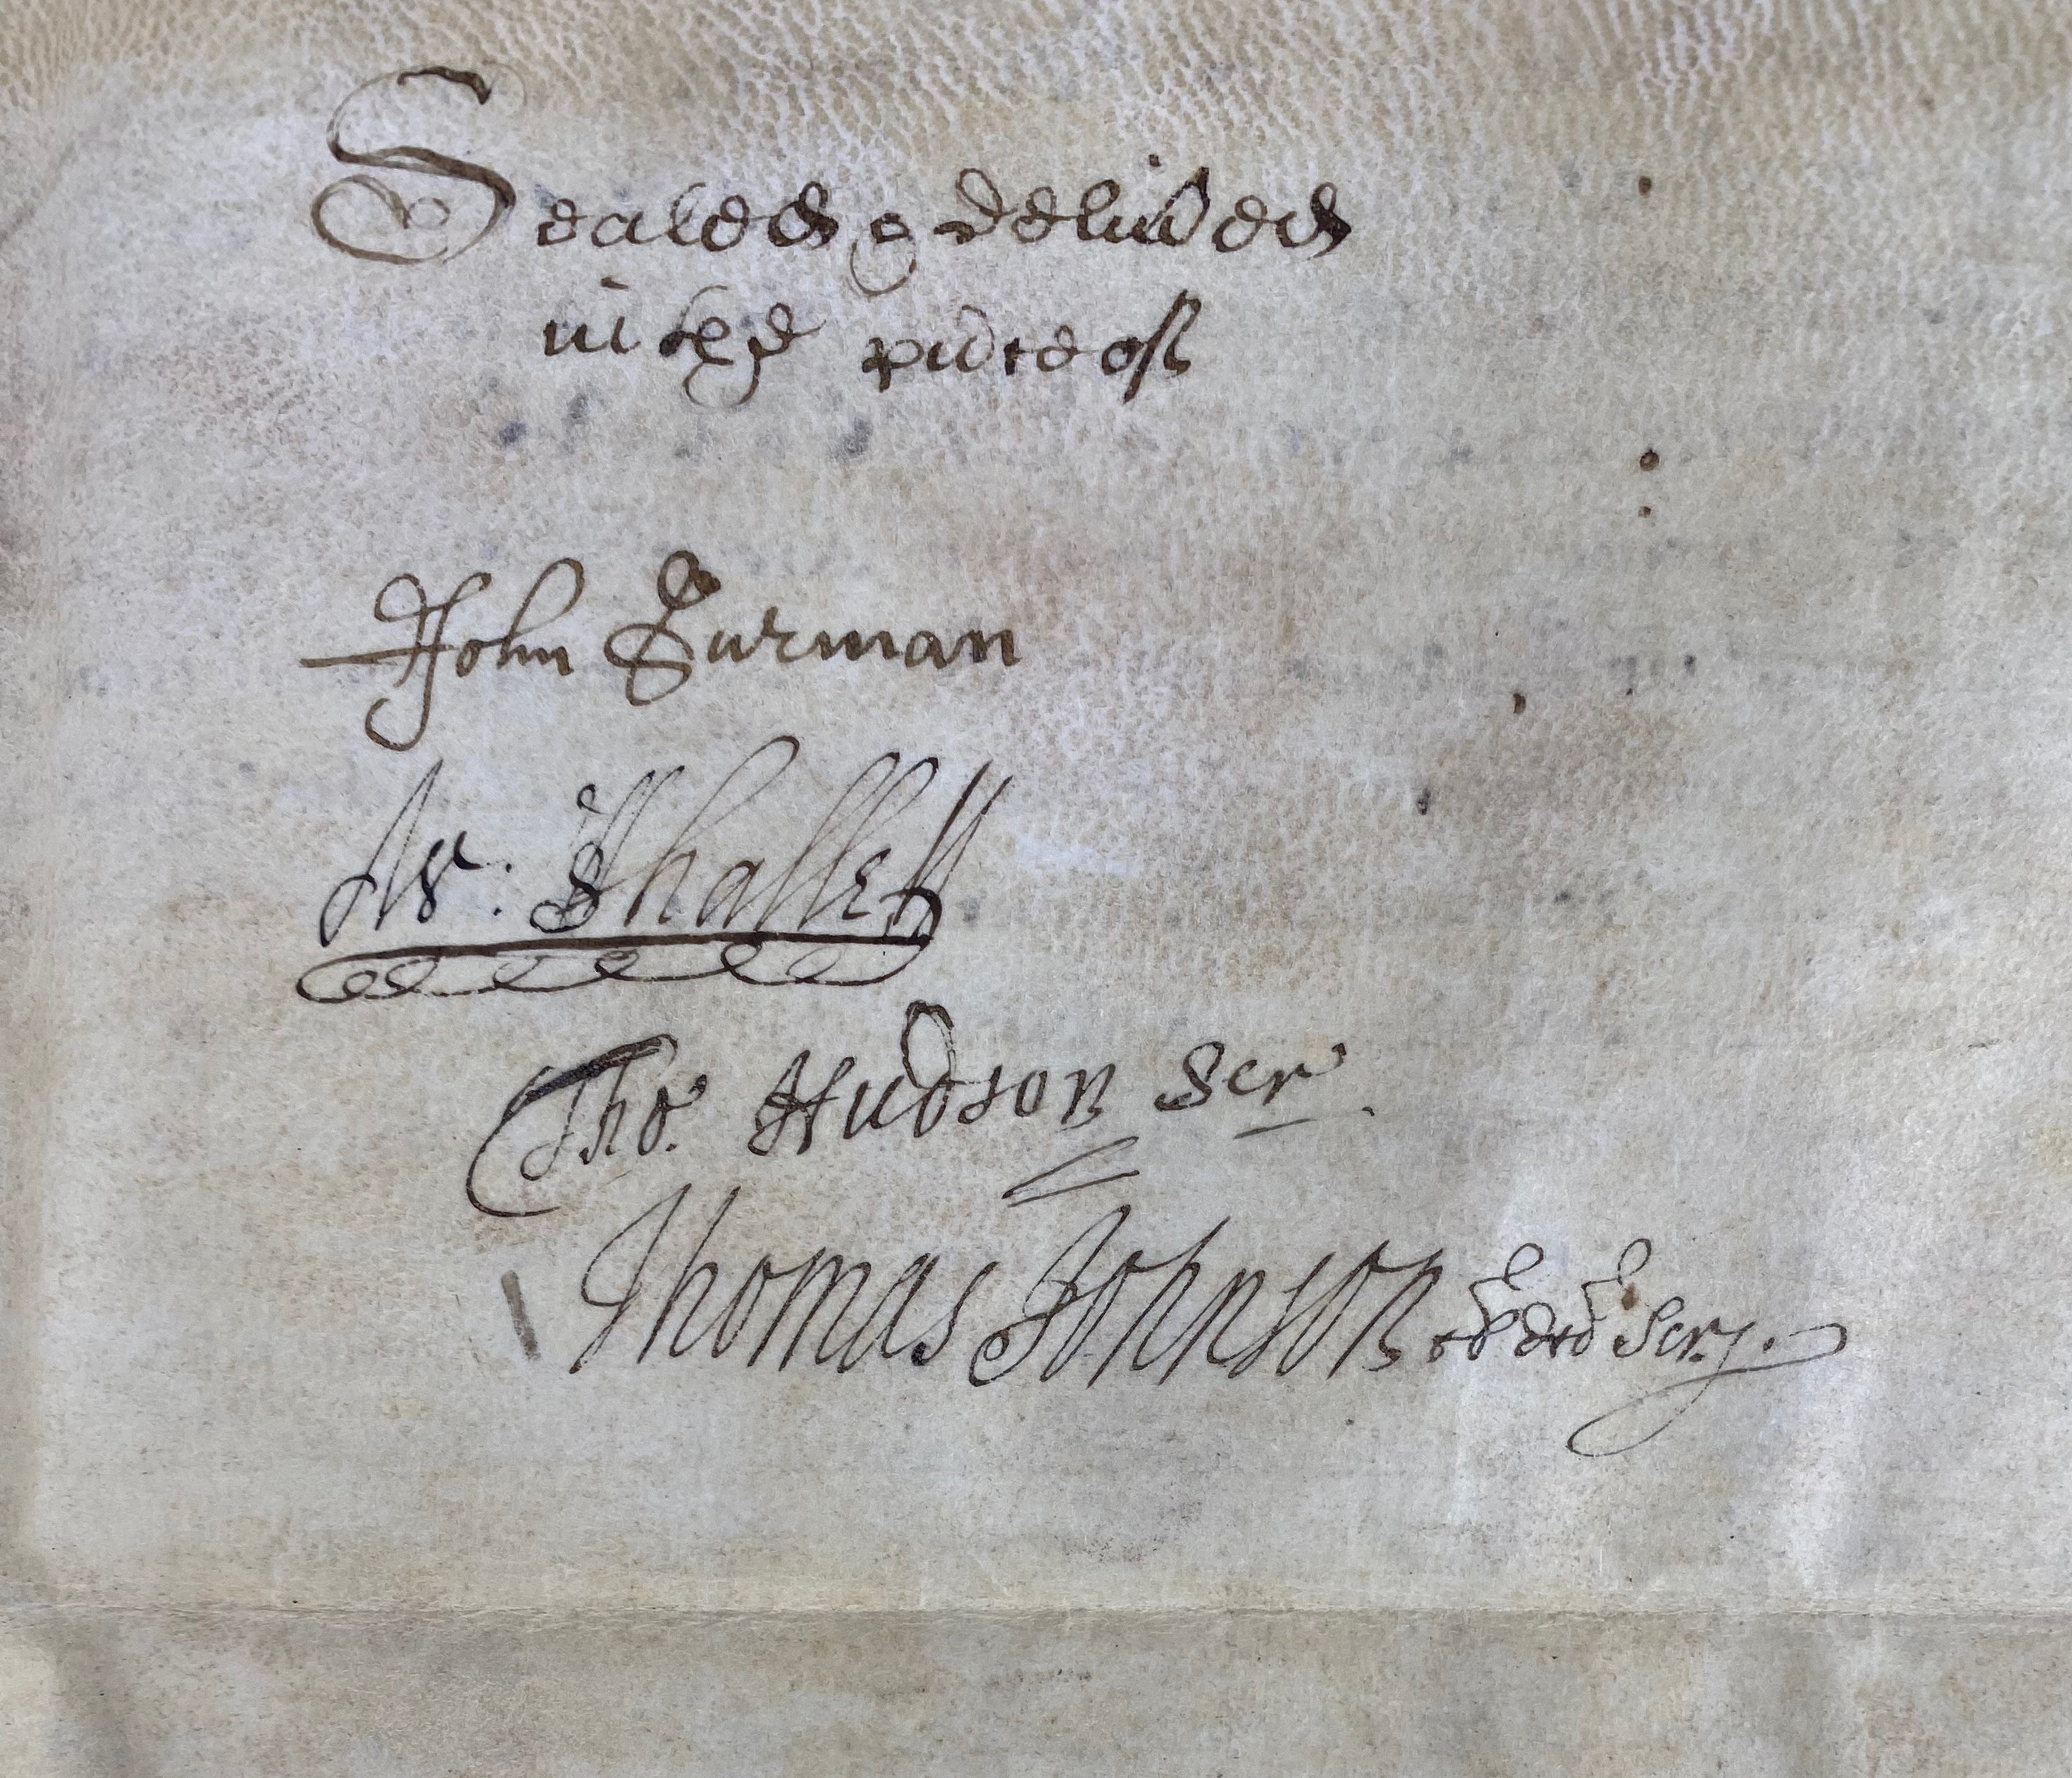 Sealed & deliv'ed
in the p'nce of
John Surman
W: Thallett
Tho: Hudson Scr
Thomas Johnson Scr.